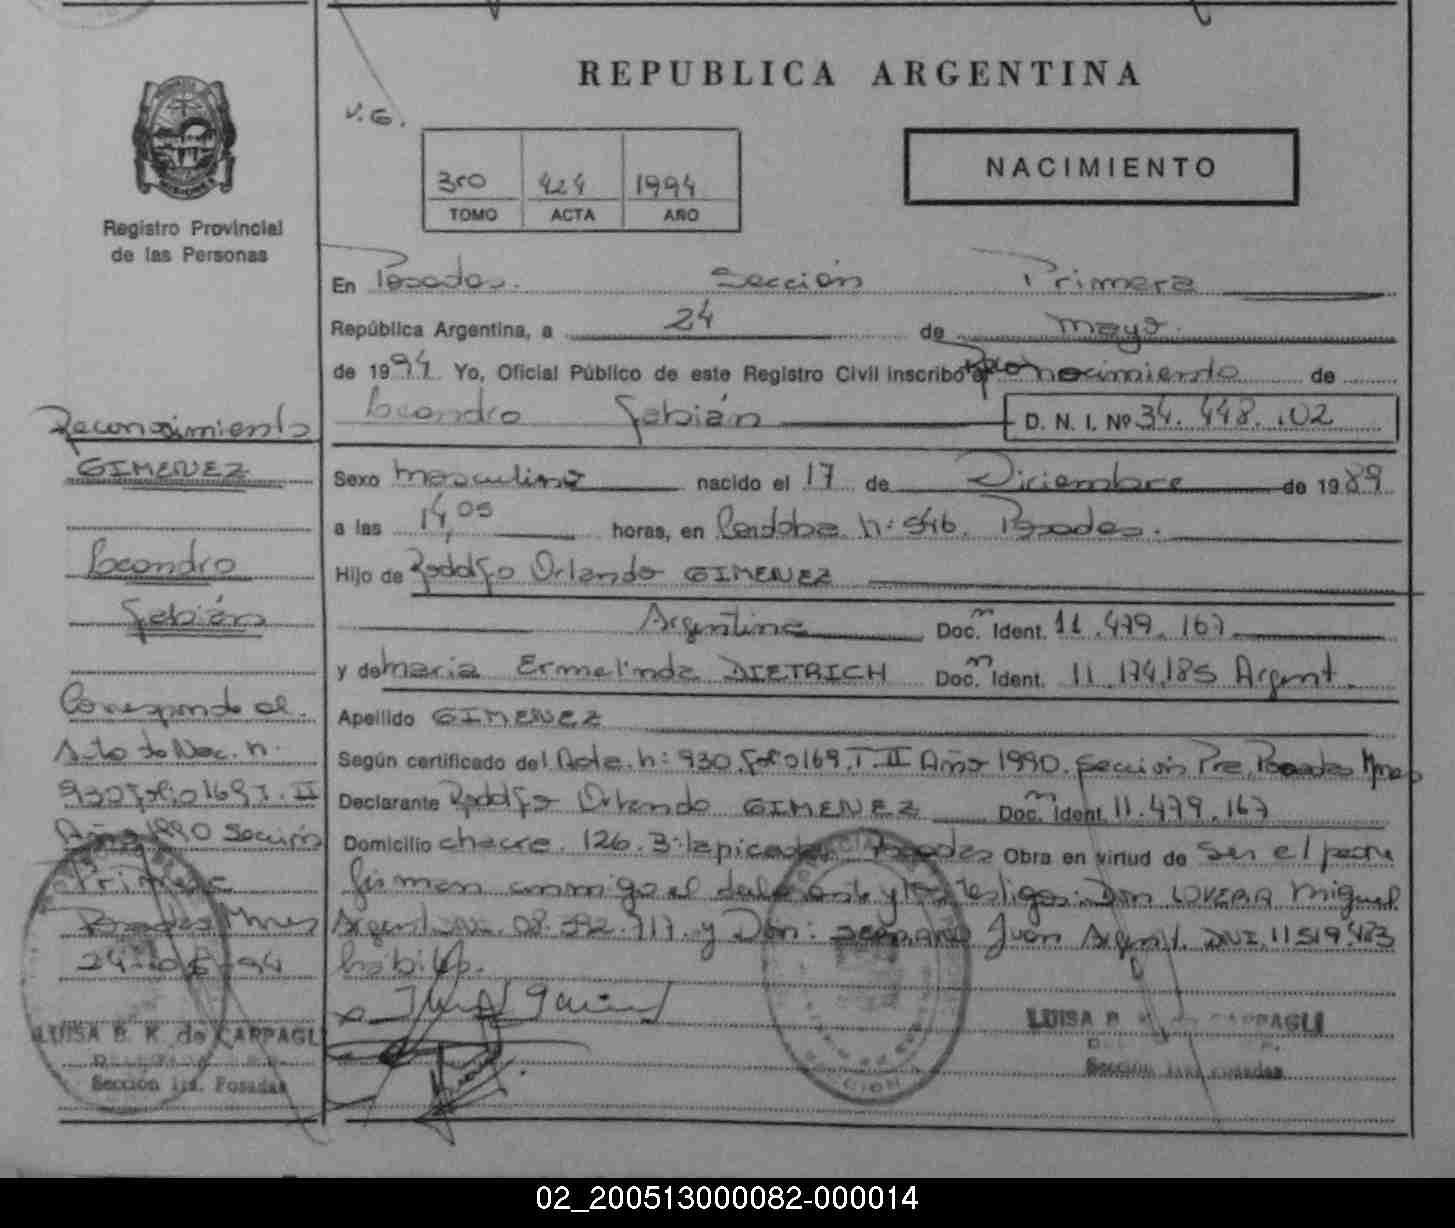 REPUBLICA ARGENTINA
V.G.
3ro 424 1994
TOMO ACTA AÑO
NACIMIENTO
Registro Provincial
de las Personas
En Posadas. Sección Primera
República Argentina, a 24 de mayo.
de 1994 Yo, Oficial Público de este Registro Civil inscribo el Reconocimiento de
Leandro Fabián D. N. I. Nº 34.448.102
Sexo masculino nacido el 17 de Diciembre de 1989
a las 14,05 horas, en Cordoba n: 546. Posadas.
Hijo de Rodolfo Orlando GIMENEZ
Argentina Doc. Ident. 11.479.167
y de Maria Ermelinda DIETRICH Doc. Ident. 11.174.185 Argent.
Apellido GIMENEZ
Según certificado del Acta. n: 930. folio 169. T. II Año 1990. Sección Pra. Posadas Mnes
Declarante Rodolfo Orlando GIMENEZ Doc. Ident. 11.479.167
Domicilio chacra. 126. Posadas Obra en virtud de Ser el padre
firman conmigo el declarante y los testigos: Don LOVERA Miguel
Argent. DNI. 08.392.717. y Don: Juan Argent. DNI. 11519.423
habiles.
LUISA B. K. de CARPAGLI
Sección 1ra. Posadas
Reconocimiento
GIMENEZ
Leandro
Fabián
Corresponde al.
Acta de Nac. n.
930 folio 169 T. II
Año 1990 Sección
Primera
Posadas Mnes
24-05-94
LUISA B. K. de CARPAGLI
Sección 1ra. Posadas
02_200513000082-000014